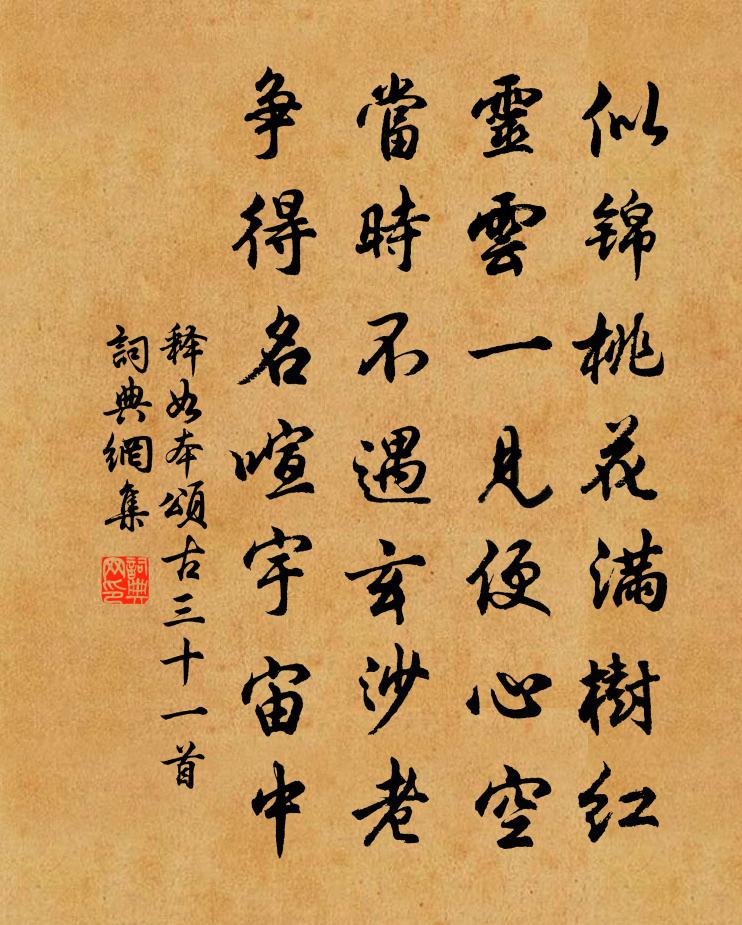 似锦桃花满樹红
靈雲一見便心空
當時不遇玄沙老
争得名喧宇宙中
释如本頌古三十一首
詞典網集
詞典网印